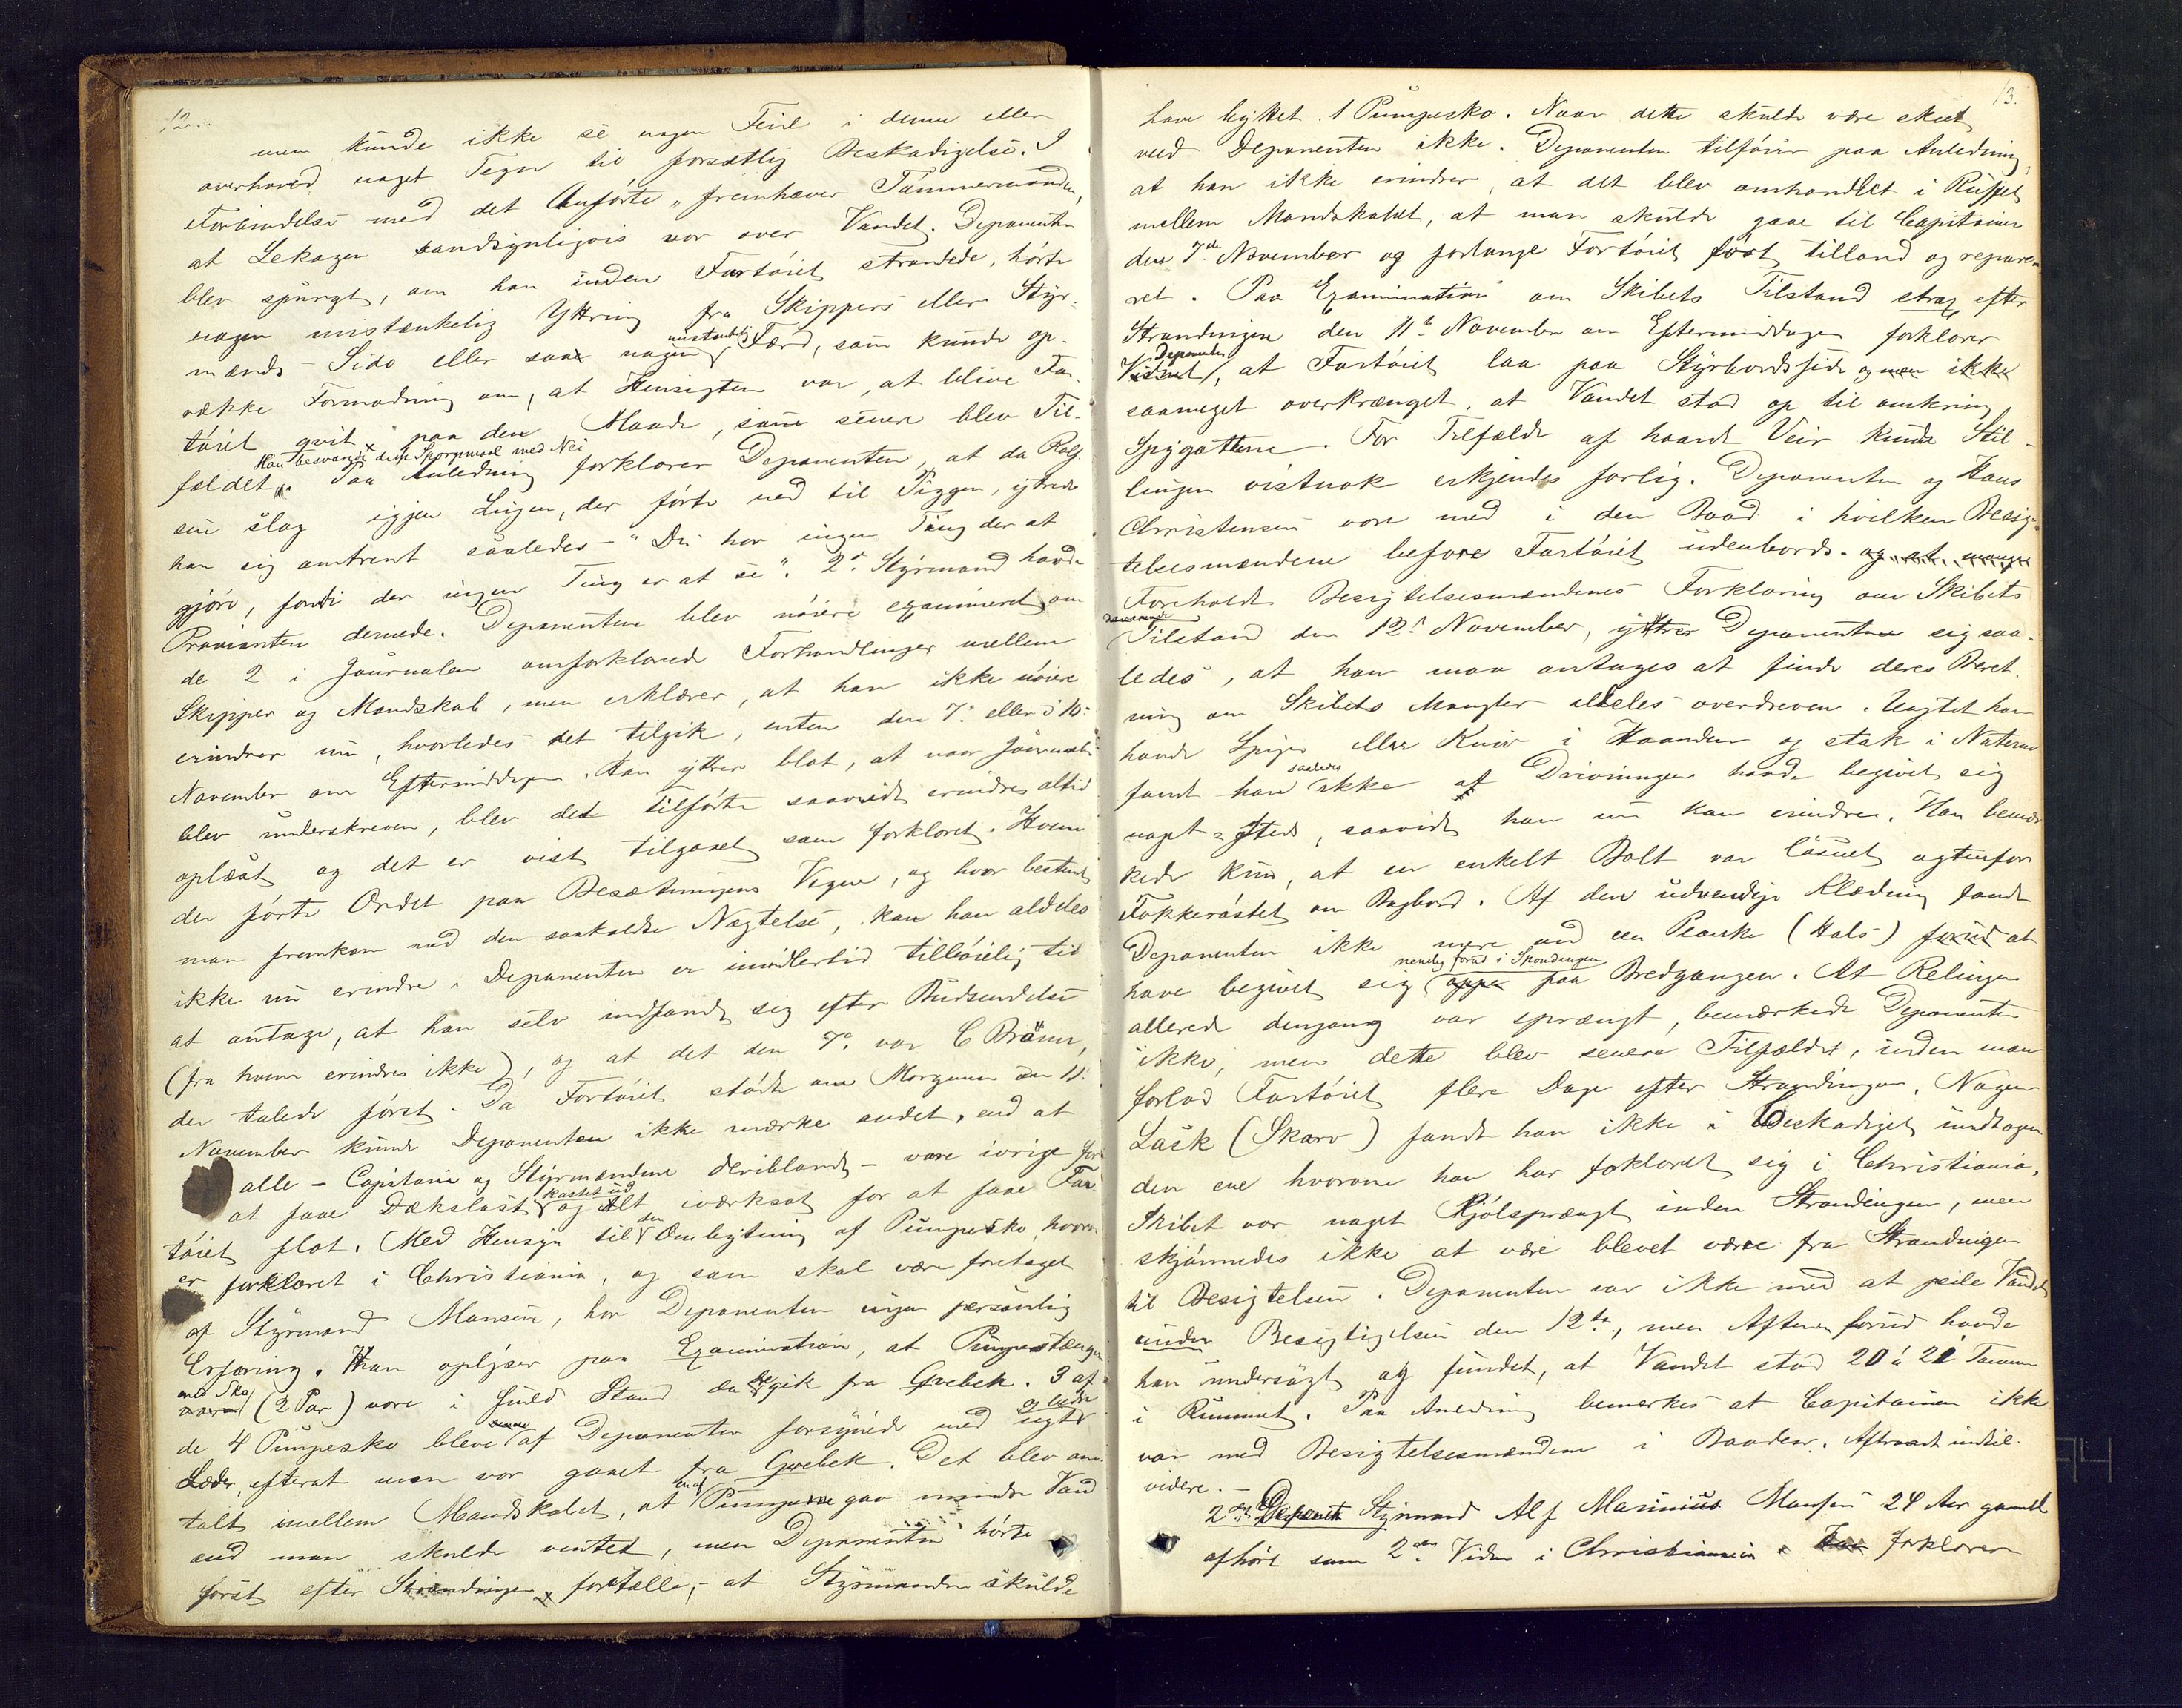 12.
men kunde ikke se nogen Feil i denne eller
overhoved noget Tegn til forsætlig Beskadigelse. I
Forbindelse med det Anførte „fremhæver Tømmermanden,
at Lekagen sandsynligvis var over Vandet. Deponenten
blev spurgt, om han inden Fartøiet strandede, hørte
nogen mistænkelig Yttring fra Skippers eller Styr-
mænds Side eller saae nogen mistænkelig Færd, som kunde op-
vække Formodning om, at Hensigten var, at blive Far-
tøiet qvit paa den Maade, som senere blev Til-
Han besvarede dette Spørgsmaal med Nei
fældet. Paa Anledning forklarer Deponenten, at da Rolf-
sen slog igjen Lugen, der førte ned til Piggen, yttrede
han sig omtrent saaledes - "Du har ingen Ting der at
gjøre, fordi der ingen Ting er at se". 2den Styrmand havde
Provianten dernede. Deponenten blev nøiere examineret om
de 2 i Journalen omforklarede Forhandlinger mellem
Skipper og Mandskab, men erklærer, at han ikke nøiere
erindrer nu, hvorledes det tilgik, enten den 7de eller d 10de
November om Eftermiddagen. Han yttrer blot, at naar Journalen
blev underskreven, blev det tilførte saavidt erindres altid
oplæst og det er vist tilgaaet som forklaret. Hvem
der førte Ordet paa Besætningens Vegne, og hvor bestemt
man fremkom med den saakaldte Nægtelse, kan han aldeles
ikke nu erindre. Deponenten er imidlertid tilbøielig til
at antage, at han selv indfandt sig efter Budsendelse
(fra hvem erindres ikke), og at det den 7de var C Bruun,
der talede først. Da Fartøiet stødte om Morgenen den 11te
November kunde Deponenten ikke mærke andet, end at
alle - Capitain og Styrmændene deriblandt - vare ivrige for
at faae Dækslast kastet ud og Alt iværksat for at faae Far-
tøiet flot. Med Hensyn til den Ombytning af Pumpesko, hvorom
er forklaret i Christiania, og som skal være foretaget
af Styrmand Monsen, har Deponenten ingen personlig
Erfaring. Han oplyser paa Examination, at Pumpestængerne
med Sko (2 Par) vare i fuld Stand da de gik fra Grebek. 3 af
de 4 Pumpesko bleve af Deponenten forsynede med nyt og bedre
Læder, efterat man var gaaet fra Grebek. Det blev om-
talt imellem Mandskabet, at en af Pumperne gav mindre Vand
end man skulde ventet, men Deponenten hørte
først efter Strandingen fortælle, at Styrmanden skulde
13.
have byttet 1 Pumpesko. Naar dette skulde være skeet
ved Deponenten ikke. Deponenten tilføier paa Anledning,
at han ikke erindrer, at det blev omhandlet i Ruffet
mellem Mandskabet, at man skulde gaae til Capitainen
den 7de November og forlange Fartøiet ført tilland og repare-
ret. Paa Examination om Skibets Tilstand strax efter
Strandingen den 11te November om Eftermiddagen forklarer
Vidnet Deponenten, at Fartøiet laa paa Styrbordsside og men ikke
saameget overkrænget, at Vandet stod op til omkring
Spygattene. For Tilfælde af haardt Veir kunde Stil-
lingen vistnok erkjendes farlig. Deponenten og Hans
Christensen vare med i den Baad i hvilken Besig-
telsesmændene before Fartøiet udenbords. og at mange
Foreholdt Besigtelsesmændenes Forklaring om Skibets
daværende Tilstand den 12te November, yttrer Deponenten sig saa-
ledes, at han maa antages at finde deres Beret-
ning om Skibets Mangler aldeles overdreven. Uagtet han
havde Spiger eller Kniv i Haanden og stak i Naterne
fandt han saaledes ikke at Drivningen havde begivet sig
noget Sted, saavidt han nu kan erindre. Han bemær-
kede kun, at en enkelt Bolt var løsnet agtenfor
Fokkerøstet om Bagbord. Af den udvendige Klædning fandt
Deponenten ikke mere end en Planke (Hals) forud at
have begivet sig nemlig forud i Skandingen oppe paa Bredgangen. At Relingen
allerede dengang var sprængt, bemærkede Deponenten
ikke, men dette blev senere Tilfældet, inden man
forlod Fartøiet flere Dage efter Strandingen. Nogen
Lask (Skarv) fandt han ikke i Beskadiget undtagen
den ene hvorom han har forklaret sig i Christiania.
Skibet var noget Kjølsprængt inden Strandingen, men
skjønnedes ikke at være blevet værre fra Strandingen
til Besigtelsen. Deponenten var ikke med at peile Vandet
under Besigtigelsen den 12te, men Aftenen forud havde
han undersøgt og fundet, at Vandet stod 20 à 21 Tommer
i Rummet. Paa Anledning bemærkes at Capitainen ikke
var med Besigtelsesmændene i Baaden. Aftraadt indtil
videre. -
2den Deponent Styrmand Alf Marinius Monsen 24 Aar gammel
afhørt som 2det Vidne i Christiania. Han forklarer